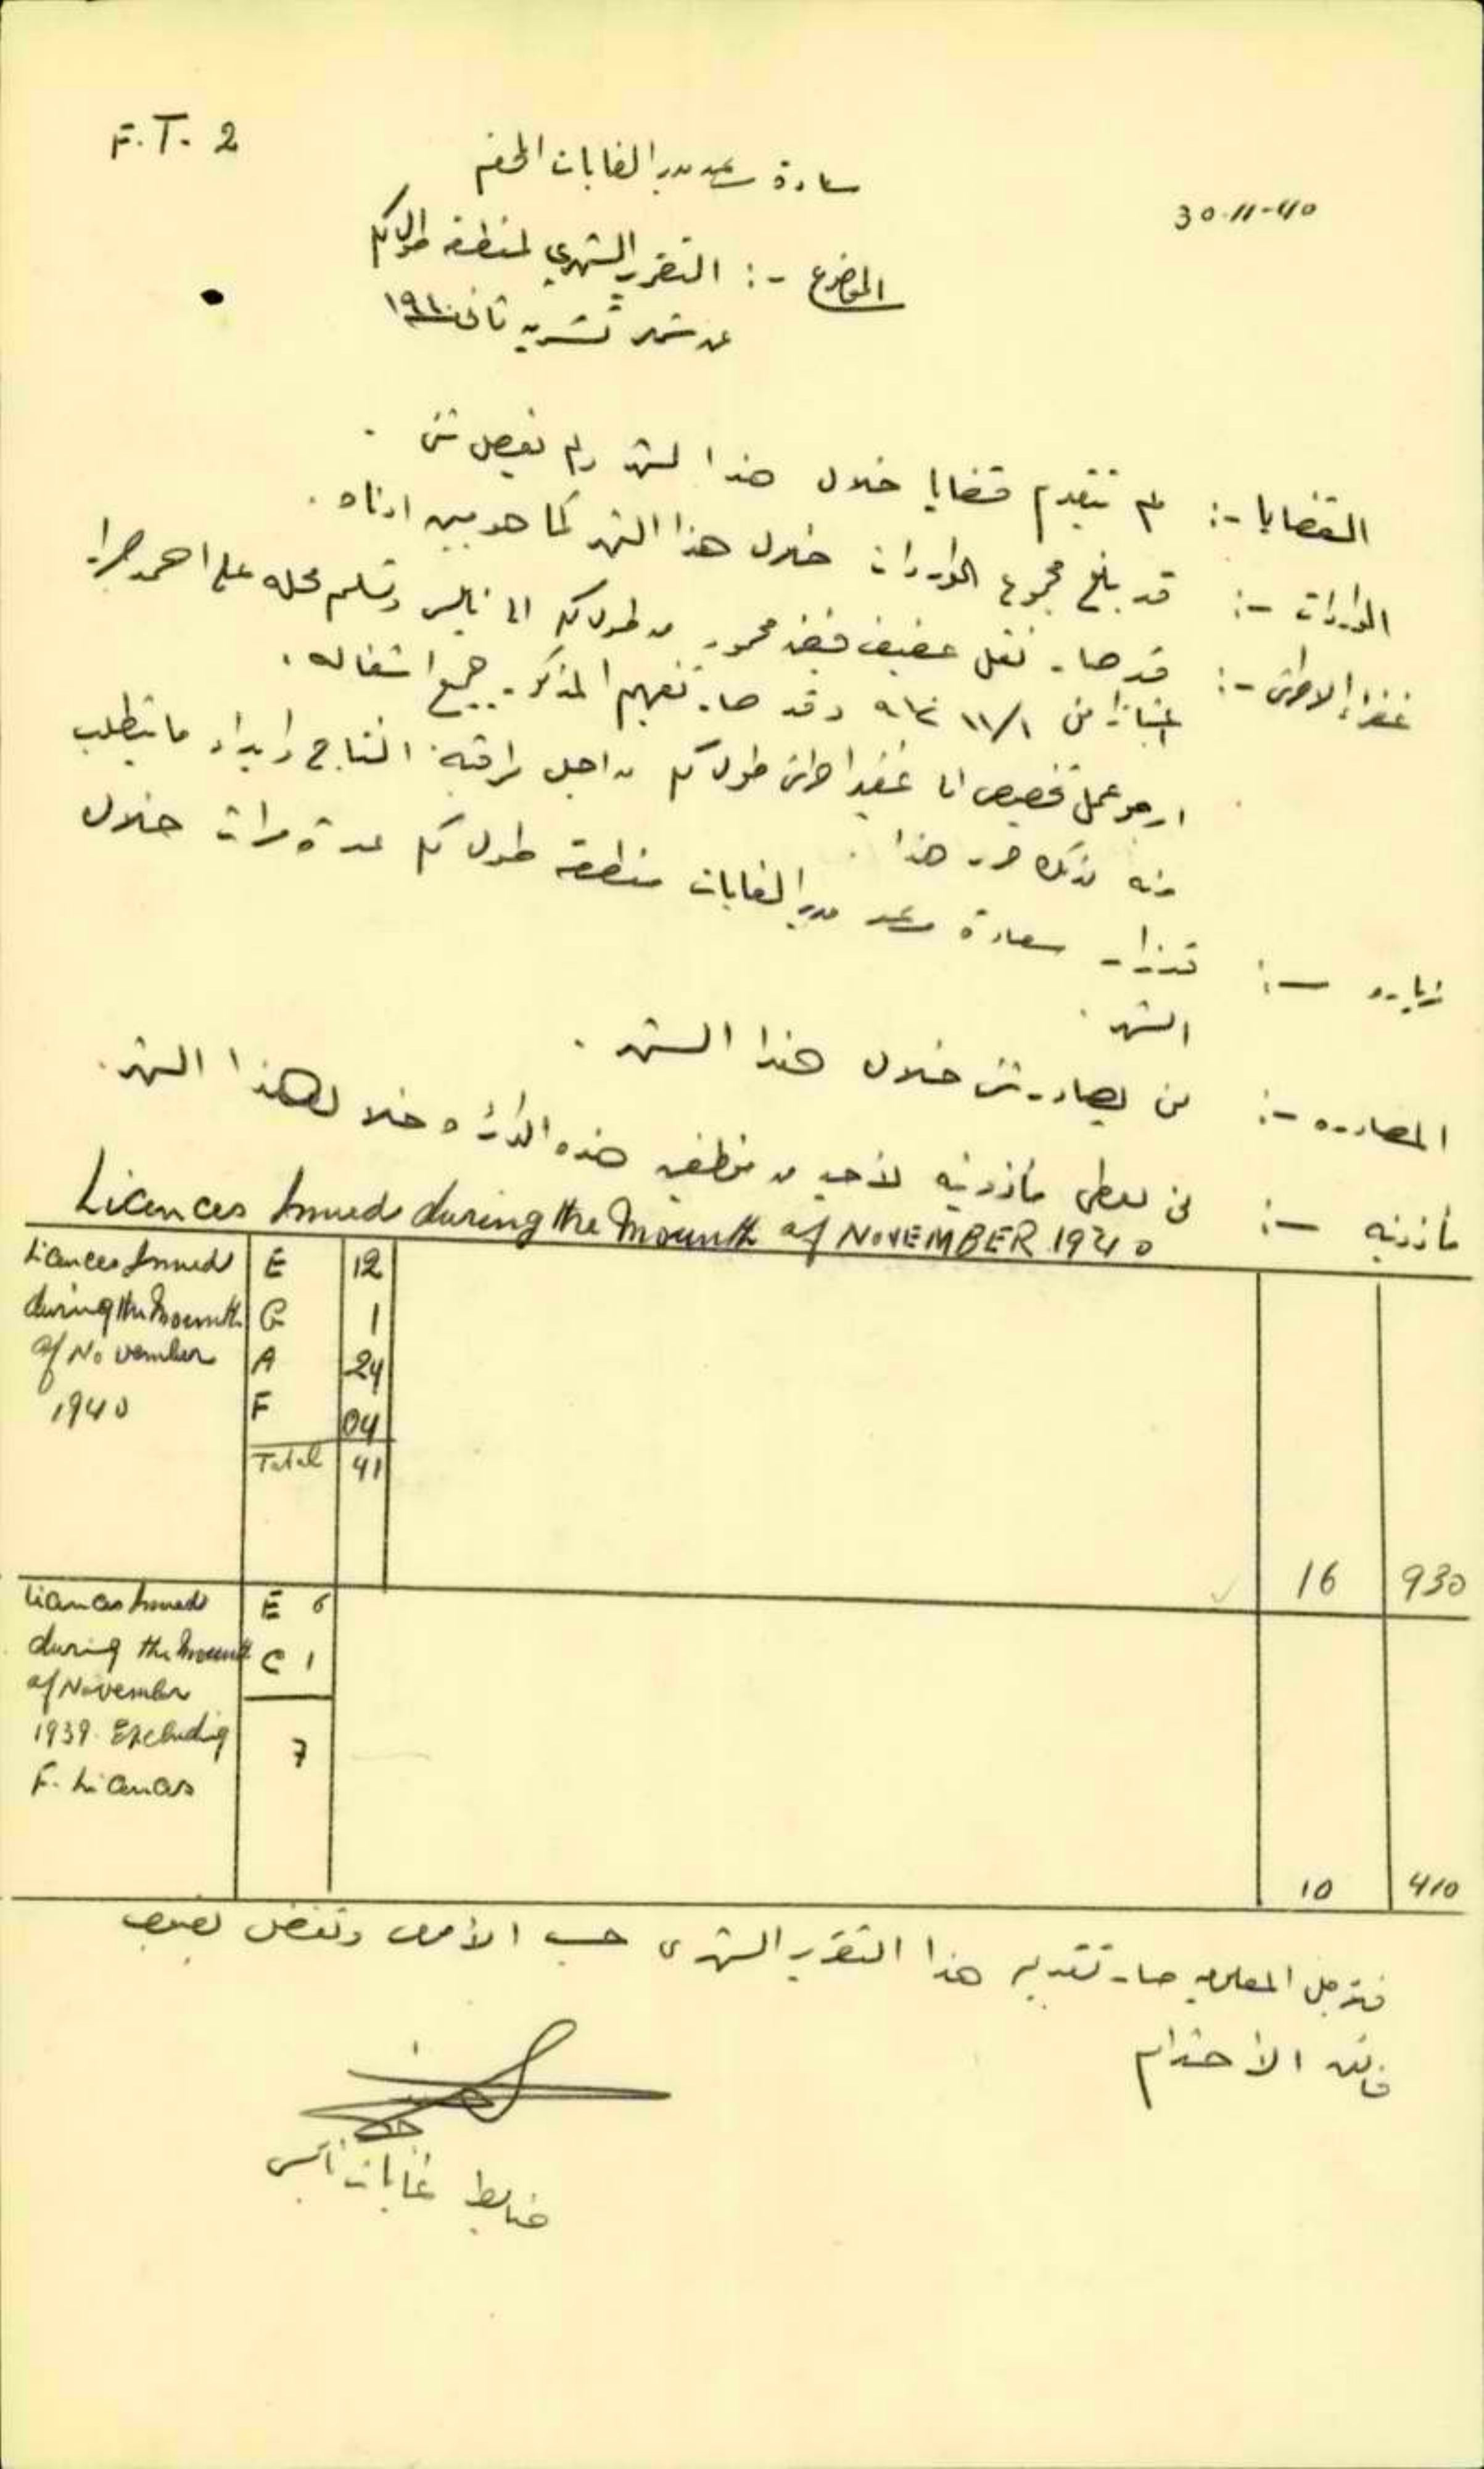 F.T. 2
30-11-40
سعادة مساعد مدير الغابات المحترم
الموضوع -: التقرير الشهري لمنطقة طولكرم
عن شهر تشرين ثاني ١٩٤٠
القضايا -: لم تتقدم قضايا خلال هذا الشهر ولم يفصل شئ .
الواردات -: قد بلغ مجموع الواردات خلال هذا الشهر كما هو مبين ادناه .
غفراء الاحراش -: قد صار نقل عفيف محمود من طولكرم الى نابلس وتسلم محله علي احمد
اعتبارا من ١١/١ ٩٤٠ وقد صار تفهيم المذكور جميع اشغاله .
ارجو عمل تخصيص الى غفير احراش طولكرم من اجل مراقبة النتاج وابداء ما يتطلب
منه لذلك حرر هذا .
زياره -: قد زار سعادة مساعد مدير الغابات منطقة طولكرم عدة مرات خلال
الشهر .
المصادره -: لن يصادر شئ خلال هذا الشهر .
مأذونيه -: لن يعطى مأذونيه لأحد من موظفين هذه الدائره خلال هذا الشهر .
Licences Issued during the Mounth of NOVEMBER 1940
Licences Issued E 12
during the Mounth G 1
of November A 24
1940 F 04
Total 41
16 930
Licences Issued E 6
during the Mounth C 1
of November
1939. Excluding 7
F. Licences
10 410
فنرجو المعلوميه صار تقديم هذا التقرير الشهري حسب الأصول وتفضل بقبول
فائق الأحترام
ضابط غابات نابلس